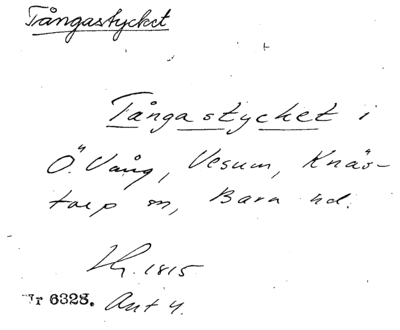 Tångastycket
Tångastycket i
Ö. Vång, Vesum, Knäs-
torp sn, Bara hd.
Hy. 1815
Nr 6328. Ant 4.